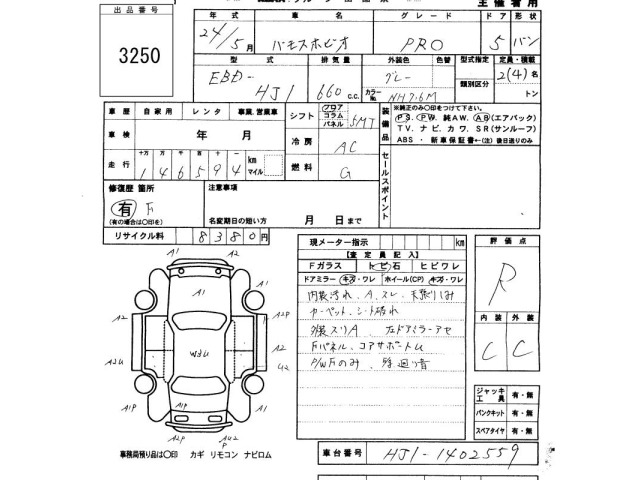 出品番号
3250
主催者用
年式 車名 グレード ドア 形状
24/5月 バモスホビオ PRO 5 バン
型式 排気量 外装色 色替 型式指定 定員・積載
EBD-HJ1 660c.c. グレー 類別区分 2(4)名
カラーNo. NH76M トン
車歴 自家用 レンタ 事業.営業車
シフト フロア コラム パネル 5MT
装備品
※純正のみ〇印をつけて下さい。
PS. PW. 純AW. AB(エアバック)
TV. ナビ. カワ. SR(サンルーフ)
ABS ・ 新車保証書←(注) 後日送りのみ
車検 年 月
冷房 AC
走行 十万 万 千 百 十 一 km マイル
146594
燃料 G
セールスポイント
修復歴 箇所 注意事項
有 F
(有の場合は〇印を) 名変期日の短い方 月 日まで
リサイクル料 8380円
現メーター指示 km
評価点
R
【査定員記入】
Fガラス トビ石 ヒビワレ
ドアミラー(キズ・ワレ ホイール(CP) キズ・ワレ
内装汚れ、A、スレ、天張りしみ
カーペット、シート破れ
外装スリA 左ドアミラーアセ
Fパネル、コアサポートム
P/W Fのみ
内装 外装
C C
A1 A2
A1
A1 A1
A2 A2P
A2U U2
MEM
A1P A1P A1
A2P U2P
A2
ジャッキ 工具 有・無
パンクキット 有・無
スペアタイヤ 有・無
事務局預り品は〇印 カギ リモコン ナビロム
車台番号 HJ1-1402559